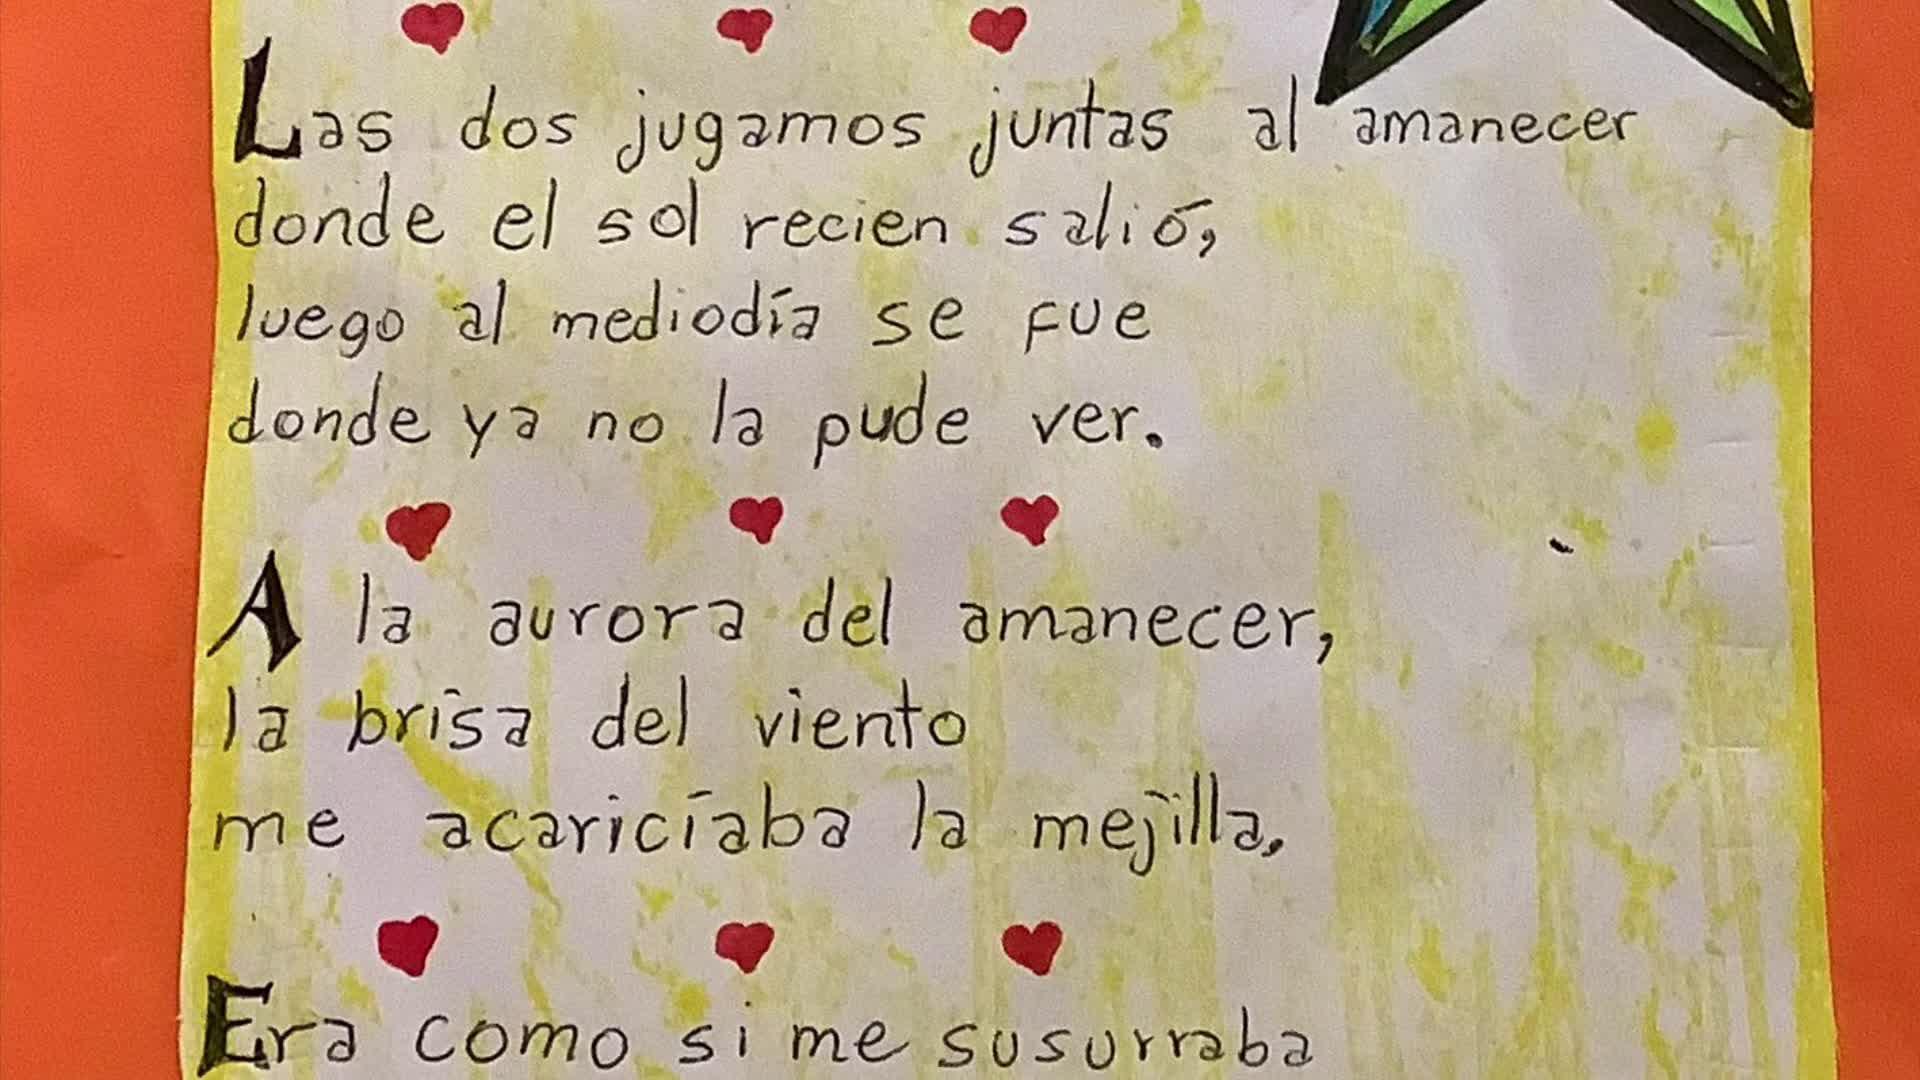 Las dos jugamos juntas al amanecer
donde el sol recien salió,
luego al mediodía se fue
donde ya no la pude ver.
A la aurora del amanecer,
la brisa del viento
me acariciaba la mejilla.
Era como si me susurraba